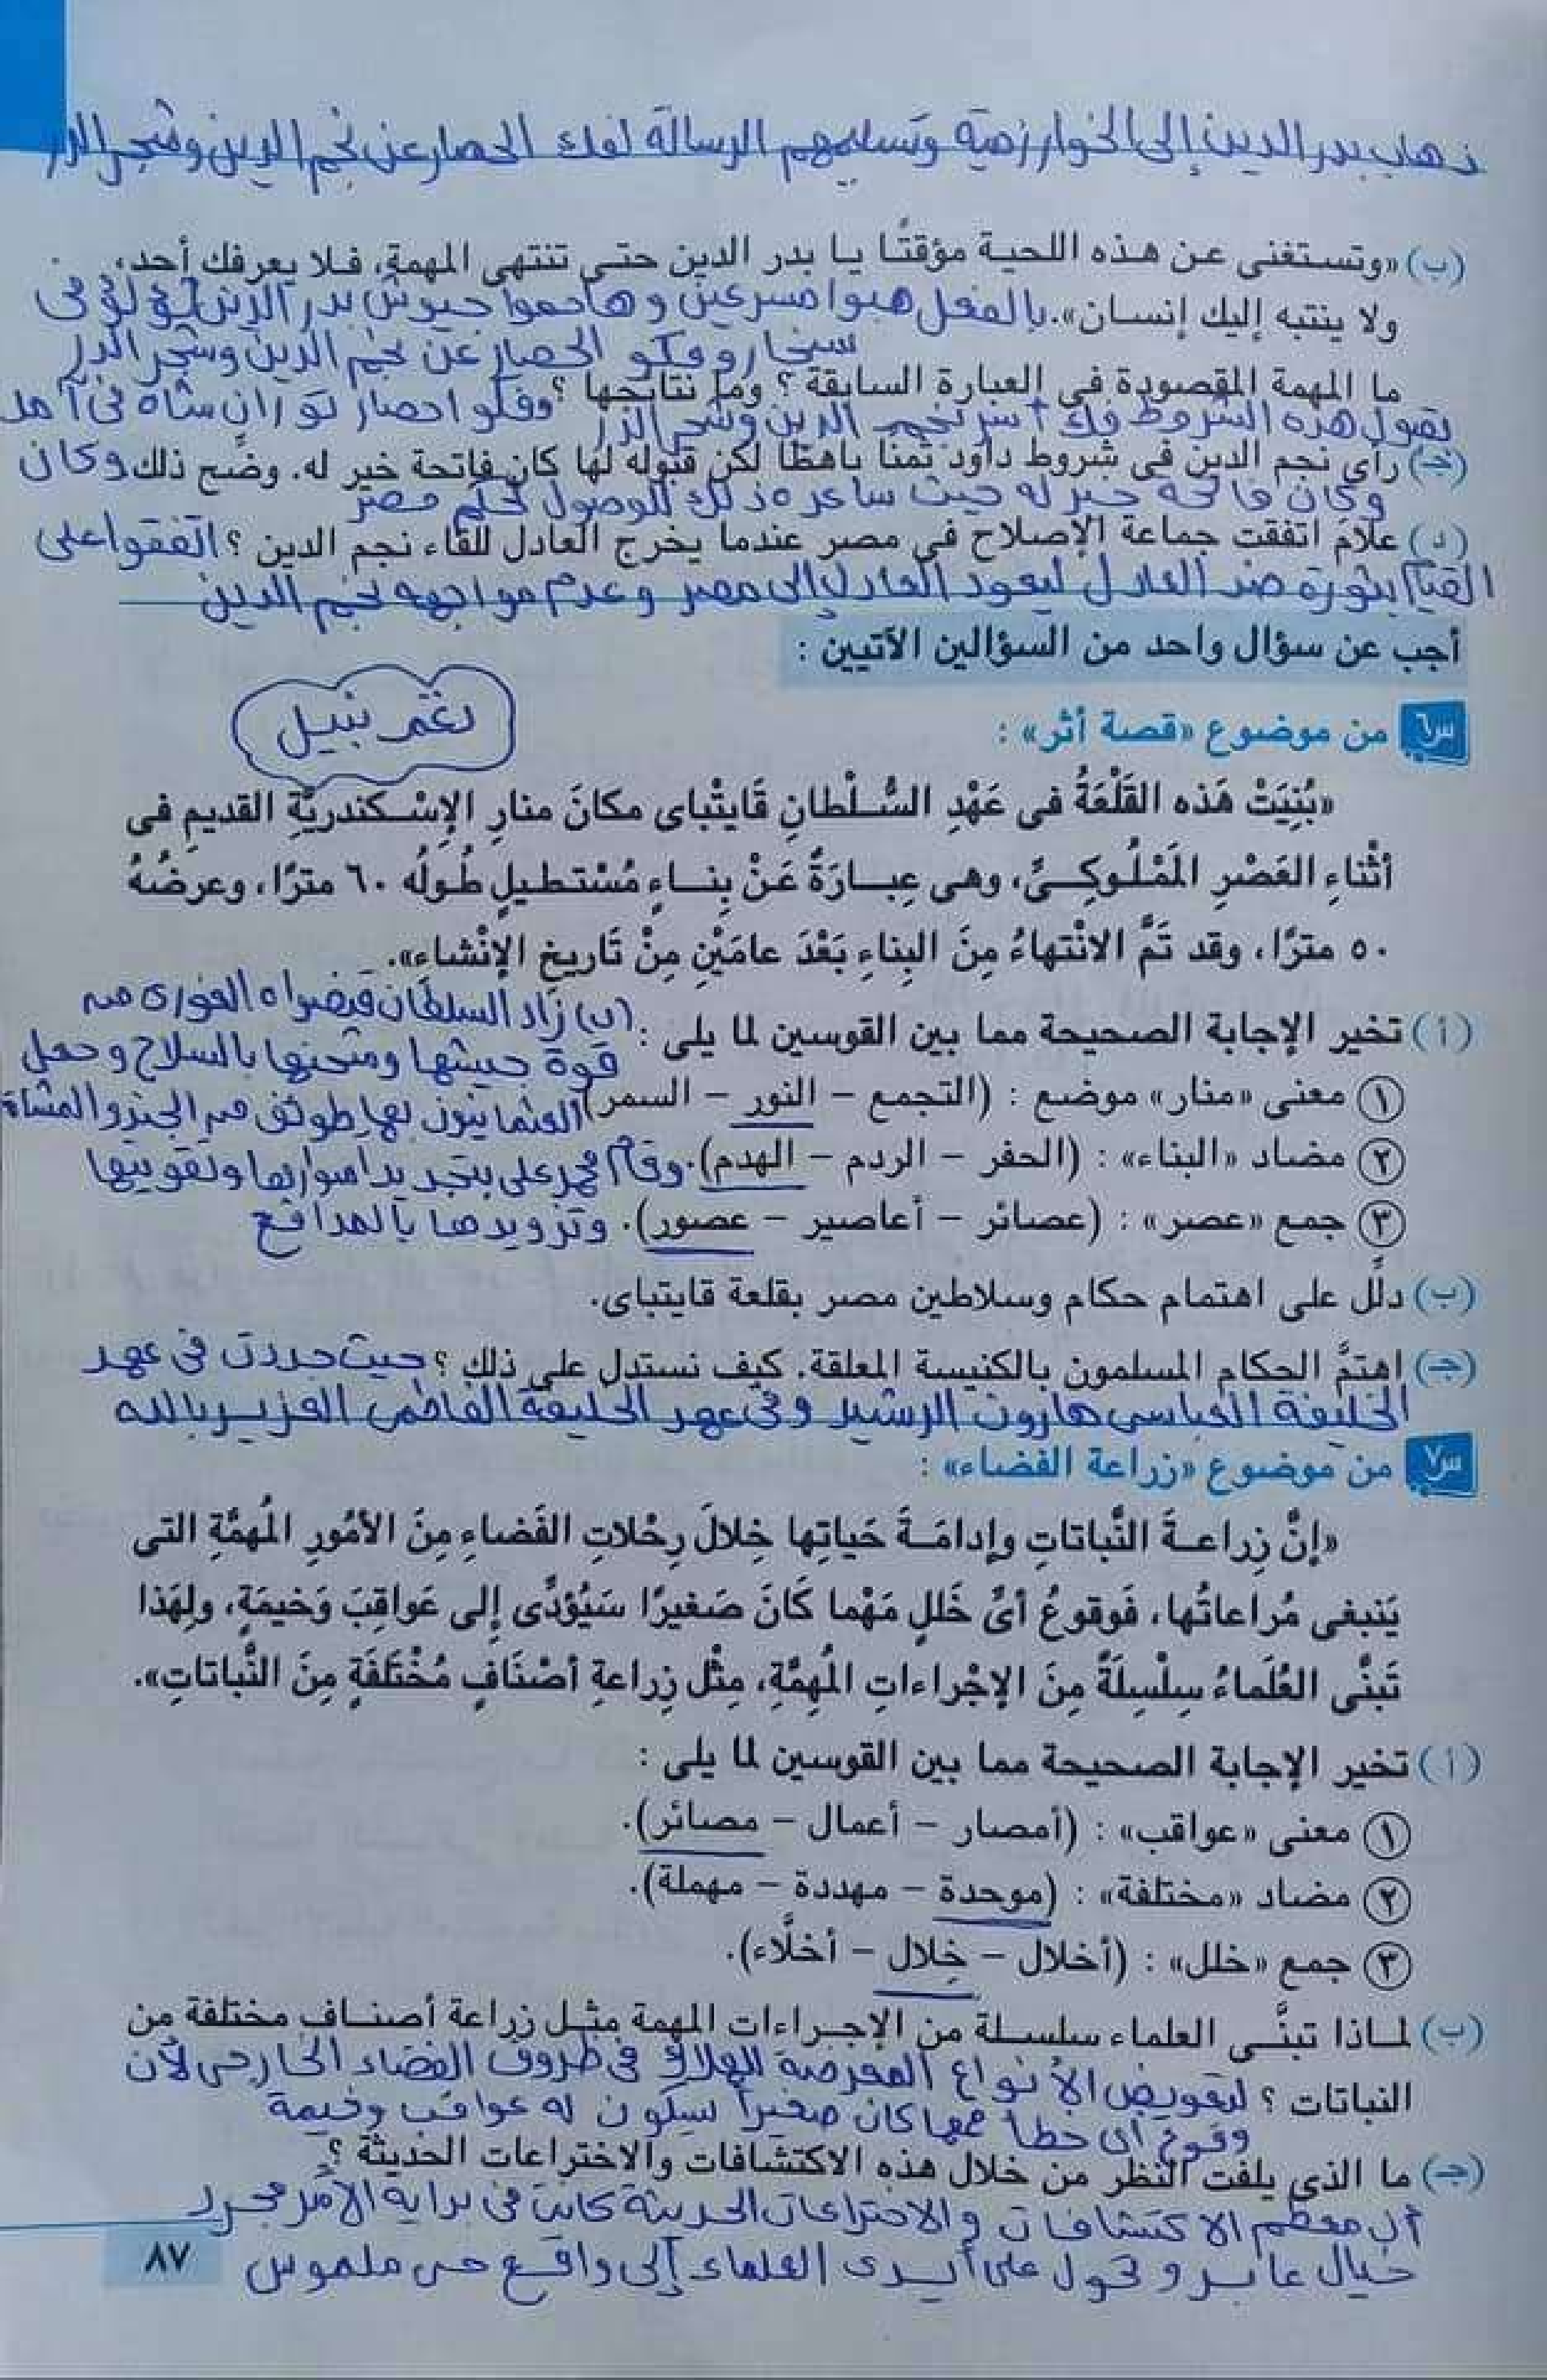 ذهاب بدر الدين إلى الخوارزمية وتسليمهم الرسالة لفك الحصار عن نجم الدين وشجر الدر
(ب) «وتستغنى عن هذه اللحية مؤقتًا يا بدر الدين حتى تنتهى المهمة، فلا يعرفك أحد،
ولا ينتبه إليك إنسان». بالفعل هبوا مسرعين وهاجموا جيوش بدر الدين لؤلؤ فى
سنجار وفكو الحصار عن نجم الدين وشجر الدر
ما المهمة المقصودة فى العبارة السابقة ؟ وما نتائجها ؟ وفكو احصار توران شاه فى آمد
(جـ) رأى نجم الدين فى شروط داود ثمنا باهظًا لكن قبوله لها كان فاتحة خير له. وضح ذلك وكان
قبول هذه الشروط فك أسر نجم الدين وشجر الدر
وكان فاتحة خير له حيث ساعده ذلك للوصول لحكم مصر
(د) علامَ اتفقت جماعة الإصلاح فى مصر عندما يخرج العادل للقاء نجم الدين ؟ اتفقوا على
القيام بثورة ضد العادل ليعود العادل إلى مصر وعدم مواجهه نجم الدين
أجب عن سؤال واحد من السؤالين الآتيين :
س٦ من موضوع «قصة أثر» :
نغم نبيل
«بُنِيَتْ هَذه القَلْعَةُ فى عَهْدِ السُّلْطانِ قَايتْباى مكانَ منارِ الإسْكندريَّةِ القديمِ فى
أثْناءِ العَصْرِ المَمْلُوكِىِّ، وهى عِبارَةٌ عَنْ بِناءٍ مُسْتطيلٍ طُولُه ٦٠ مترًا، وعرضُهُ
٥٠ مترًا، وقد تَمَّ الانْتهاءُ مِنَ البِناءِ بَعْدَ عامَيْنِ مِنْ تَاريخِ الإنْشاء».
(أ) تخير الإجابة الصحيحة مما بين القوسين لما يلى : (ب) زاد السلطان قنصواه الغورى من
قوة جيشها وشحنها بالسلاح وجعل
① معنى «منار» موضع : (التجمع – النور – السمر) العثمانيون بها طوائف من الجند والمشاة
② مضاد «البناء» : (الحفر – الردم – الهدم). وقام محمد على بتجديد اسوارها وتقويتها
③ جمع «عصر» : (عصائر – أعاصير – عصور). وتزويدها بالمدافع
(ب) دلِّل على اهتمام حكام وسلاطين مصر بقلعة قايتباى.
(جـ) اهتمَّ الحكام المسلمون بالكنيسة المعلقة. كيف نستدل على ذلك ؟ حيث جددت فى عهد
الخليفة العباسى هارون الرشيد وفى عهد الخليفة الفاطمى العزيز بالله
س٧ من موضوع «زراعة الفضاء» :
«إنَّ زِراعةَ النَّباتاتِ وإدامَةَ حَياتِها خِلالَ رِحْلاتِ الفَضاءِ مِنَ الأمُورِ المُهمَّةِ التى
يَنبغى مُراعاتُها، فَوقوعُ أىِّ خَللٍ مَهْما كَانَ صَغيرًا سَيُؤدِّى إلى عَواقِبَ وَخيمَةٍ، ولِهَذا
تَبنَّى العُلَماءُ سِلْسِلَةً مِنَ الإجْراءاتِ المُهِمَّةِ، مِثْل زِراعةِ أصْنَافٍ مُخْتَلفَةٍ مِنَ النَّباتاتِ».
(أ) تخير الإجابة الصحيحة مما بين القوسين لما يلى :
① معنى «عواقب» : (أمصار – أعمال – مصائر).
② مضاد «مختلفة» : (موحدة – مهددة – مهملة).
③ جمع «خلل» : (أخلال – خِلال – أخلَّاء).
(ب) لماذا تبنَّى العلماء سلسلة من الإجراءات المهمة مثل زراعة أصناف مختلفة من
النباتات ؟ لتعويض الأنواع المعرضة للهلاك فى ظروف الفضاء الخارجى لأن
وقوع أى خطأ مهما كان صغيرا سيكون له عواقب وخيمة
(جـ) ما الذى يلفت النظر من خلال هذه الاكتشافات والاختراعات الحديثة ؟
أن معظم الاكتشافات والاختراعات الحديثة كانت فى بداية الأمر مجرد
خيال عابر وتحول على أيدى العلماء إلى واقع حى ملموس
٨٧